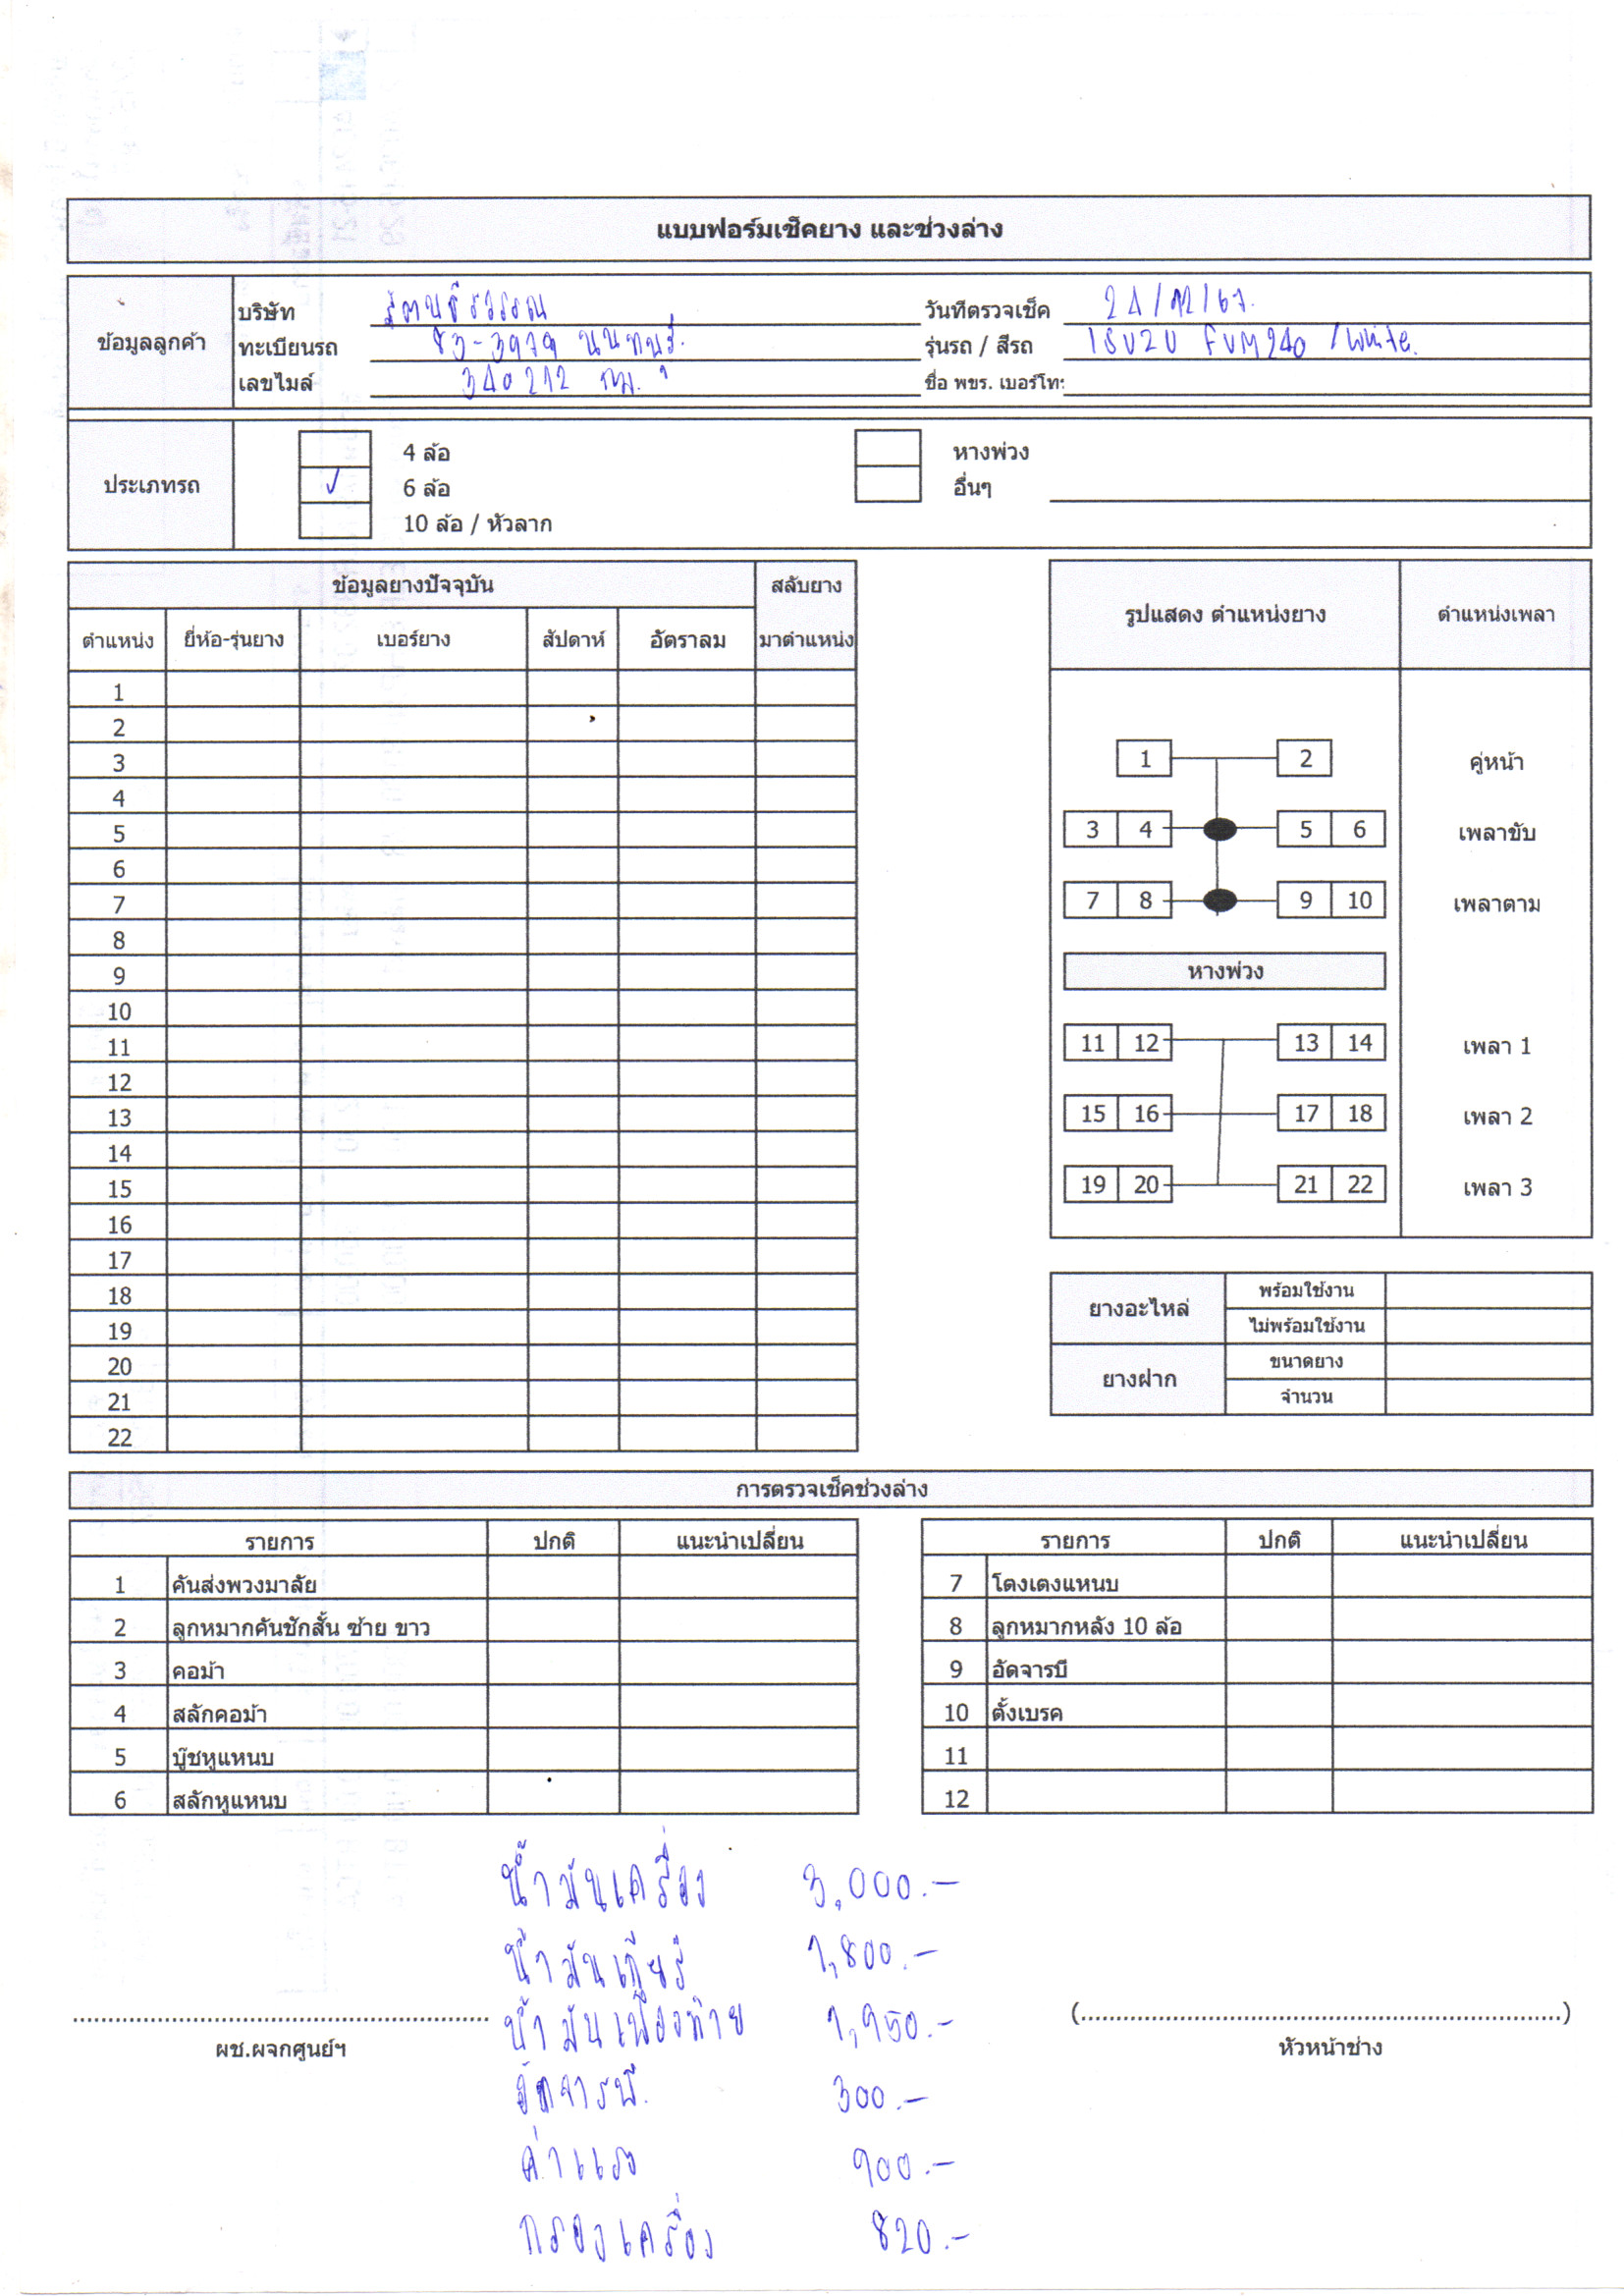 แบบฟอร์มเช็คยาง และช่วงล่าง
ข้อมูลลูกค้า
บริษัท
วันที่ตรวจเช็ค 24/12/67.
ทะเบียนรถ 83-3979 นนทบุรี.
รุ่นรถ / สีรถ ISUZU FVM240 / White.
เลขไมล์ 340212 กม.
ชื่อ พขร. เบอร์โท:
ประเภทรถ
4 ล้อ
✓ 6 ล้อ
10 ล้อ / หัวลาก
หางพ่วง
อื่นๆ
ข้อมูลยางปัจจุบัน สลับยาง
ตำแหน่ง ยี่ห้อ-รุ่นยาง เบอร์ยาง สัปดาห์ อัตราลม มาตำแหน่ง
1
2
3
4
5
6
7
8
9
10
11
12
13
14
15
16
17
18
19
20
21
22
รูปแสดง ตำแหน่งยาง ตำแหน่งเพลา
1 2 คู่หน้า
3 4 5 6 เพลาขับ
7 8 9 10 เพลาตาม
หางพ่วง
11 12 13 14 เพลา 1
15 16 17 18 เพลา 2
19 20 21 22 เพลา 3
ยางอะไหล่ พร้อมใช้งาน
ไม่พร้อมใช้งาน
ยางฝาก ขนาดยาง
จำนวน
การตรวจเช็คช่วงล่าง
รายการ ปกติ แนะนำเปลี่ยน
1 คันส่งพวงมาลัย
2 ลูกหมากคันชักสั้น ซ้าย ขาว
3 คอม้า
4 สลักคอม้า
5 บู๊ชหูแหนบ
6 สลักหูแหนบ
รายการ ปกติ แนะนำเปลี่ยน
7 โตงเตงแหนบ
8 ลูกหมากหลัง 10 ล้อ
9 อัดจารบี
10 ตั้งเบรค
11
12
น้ำมันเครื่อง 3,000.-
น้ำมันเกียร์ 1,800.-
น้ำมันเฟืองท้าย 1,950.-
อัดจารบี. 300.-
ค่าแรง 900.-
กรองเครื่อง 820.-
ผช.ผจกศูนย์ฯ
(....................)
หัวหน้าช่าง